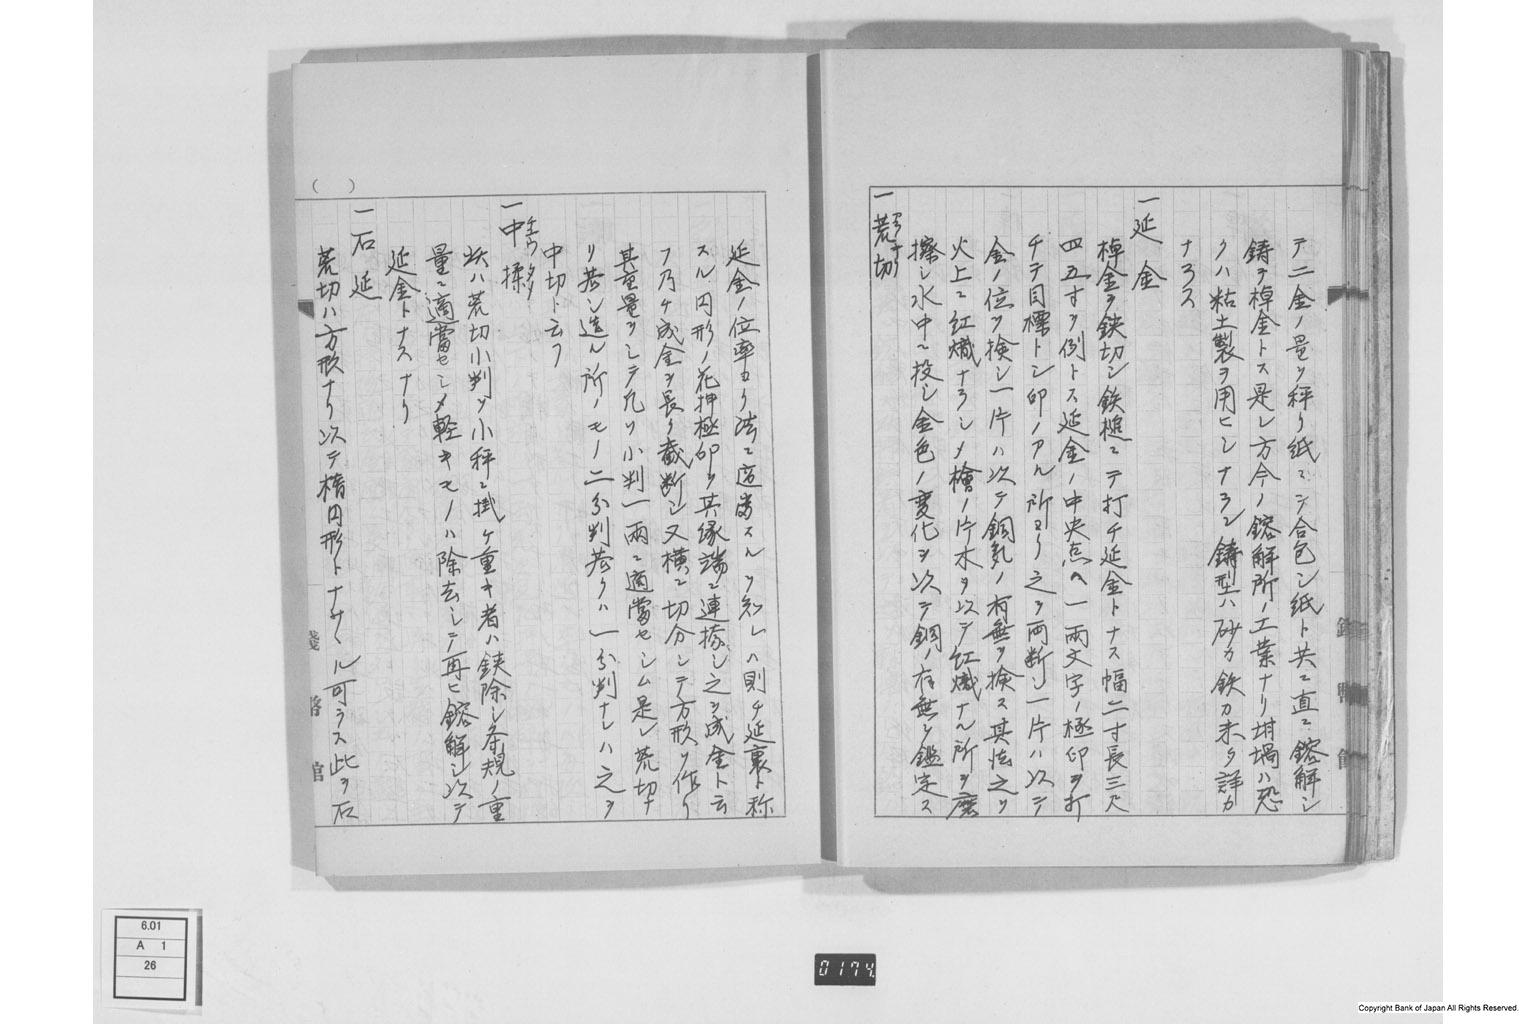 テ二金ノ量ヲ秤リ紙ニシ合包シ紙ト共ニ直ニ鎔解シ
鋳テ棹金トス是レ方今ノ鎔解所ノ工業ナリ坩堝ハ恐
クハ粘土製ヲ用ヒシナラン鋳型ハ砂カ鉄カ未タ詳カ
ナラス
一延金
棹金ヲ鋏切シ鉄槌ニテ打チ延金トナス幅二寸長三尺
四五寸ヲ例トス延金ノ中央点ヘ一両文字ノ極印ヲ打
チテ目標トシ印ノアル所ヨリ之ヲ両断シ一片ハ以テ
金ノ位ヲ検シ一片ハ以テ銅気ノ有無ヲ検ス其法之ヲ
火上ニ紅熾ナラシメ檜ノ片木ヲ以テ紅熾ナル所ヲ磨
擦シ水中ニ投シ金色ノ変化ヲ以テ銅ノ有無ヲ鑑定ス
一荒切
アラキリ
延金ノ位率ヨリ法ニ適当スルヲ知レハ則チ延裏ト称
スル円形ノ花押極印ヲ其縁端ニ連捺シ之ヲ成金ト云
フ乃チ成金ヲ長ク裁断シ又横ニ切分シテ方形ヲ作リ
其重量ヲシテ凡ソ小判一両ニ適当セシム是レ荒切ナ
リ若シ造ル所ノモノ二分判若クハ一分判ナレハ之ヲ
中切ト云フ
一中揉
次ハ荒切小判ヲ小秤ニ掛ケ重キ者ハ鋏除シ条規ノ重
量ニ適当セシメ軽キモノハ除去シテ再ヒ鎔解シ以テ
延金トナスナリ
一石延
荒切ハ方形ナリ以テ楕円形トナサヽル可ラス此ヲ石
( )
銭幣館
6.01
A 1
26
0174
Copyright Bank of Japan All Rights Reserved.